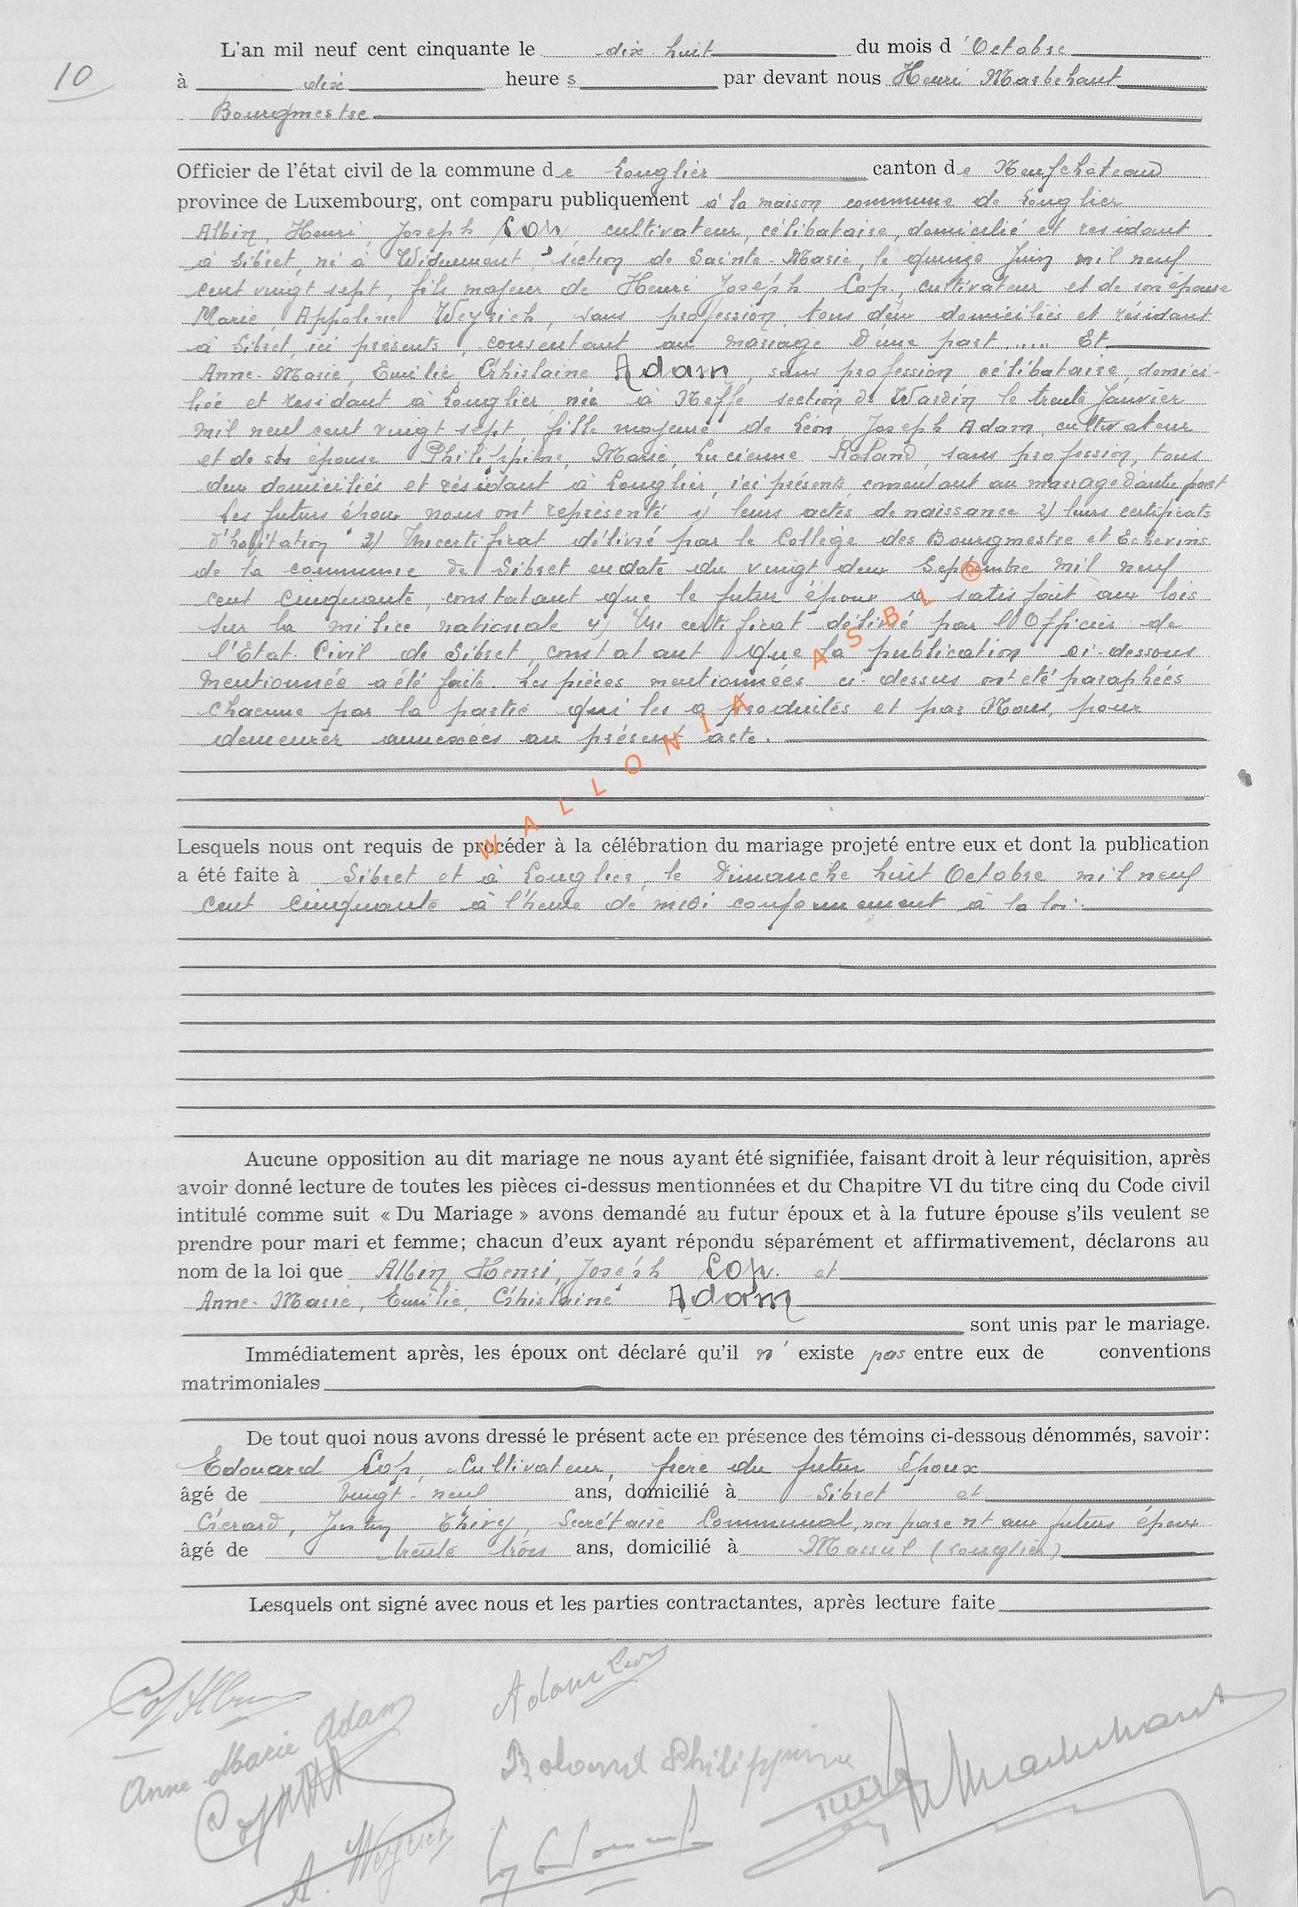 L'an mil neuf cent cinquante le dix-huit du mois d'Octobre
10
à dix heures par devant nous Henri Marbehant
Bourgmestre
Officier de l'état civil de la commune de Longlier canton de Neufchâteau
province de Luxembourg, ont comparu publiquement à la maison commune de Longlier
Albin, Henri, Joseph Cop, cultivateur, célibataire, domicilié et résidant
à Sibret, né à Widumont, section de Sainte-Marie, le quinze Juin mil neuf
cent vingt sept, fils majeur de Henri Joseph Cop, cultivateur et de son épouse
Marie, Appoline Weyrich, sans profession, tous deux domiciliés et résidant
à Sibret, ici présents, consentant au mariage d'une part ..... Et
Anne-Marie, Emilie, Ghislaine Adam, sans profession célibataire, domici-
liée et résidant à Longlier, née à Neffe section de Wardin le trente Janvier
mil neuf cent vingt sept, fille majeure de Léon Joseph Adam, cultivateur
et de son épouse Philippine, Marie, Lucienne Roland, sans profession, tous
deux domiciliés et résidant à Longlier, ici présents consentant au mariage d'autre part
Les futurs époux nous ont représenté 1) leurs actes de naissance 2) leurs certificats
d'habitation 3) Un certificat délivré par le Collège des Bourgmestre et Echevins
de la commune de Sibret en date du vingt deux Septembre mil neuf
cent cinquante, constatant que le futur époux a satisfait aux lois
sur la milice nationale 4) Un certificat délivré par l'Officier de
l'Etat-Civil de Sibret, constatant que la publication ci-dessous
mentionnée a été faite. Les pièces mentionnées ci-dessus ont été paraphées
chacune par la partie qui les a produites et par Nous, pour
demeurer annexées au présent acte.
WALLONIA ASBL ®
Lesquels nous ont requis de procéder à la célébration du mariage projeté entre eux et dont la publication
a été faite à Sibret et à Longlier, le Dimanche huit Octobre mil neuf
cent cinquante à l'heure de midi conformément à la loi.
Aucune opposition au dit mariage ne nous ayant été signifiée, faisant droit à leur réquisition, après
avoir donné lecture de toutes les pièces ci-dessus mentionnées et du Chapitre VI du titre cinq du Code civil
intitulé comme suit « Du Mariage » avons demandé au futur époux et à la future épouse s'ils veulent se
prendre pour mari et femme; chacun d'eux ayant répondu séparément et affirmativement, déclarons au
nom de la loi que Albin, Henri, Joseph Cop. et
Anne-Marie, Emilie, Ghislaine Adam
sont unis par le mariage.
Immédiatement après, les époux ont déclaré qu'il n'existe pas entre eux de conventions
matrimoniales
De tout quoi nous avons dressé le présent acte en présence des témoins ci-dessous dénommés, savoir:
Edouard Cop, Cultivateur, frère du futur époux
âgé de vingt-neuf ans, domicilié à Sibret et
Gérard, Justin Thiry, Secrétaire Communal, non parent aux futurs époux
âgé de trente trois ans, domicilié à Massul (Longlier)
Lesquels ont signé avec nous et les parties contractantes, après lecture faite
Cop Albin
Adam Léon
Anne-Marie Adam
Roland Philippine
H Marbehant
A. Weyrich